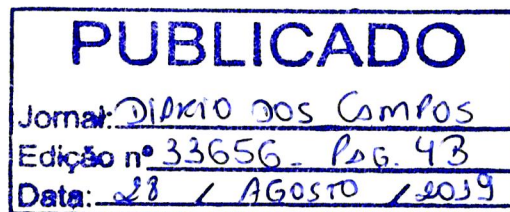 PUBLICADO
Jornal: DIÁRIO DOS CAMPOS
Edição nº 33656 - PAG. 4B
Data: 28 / AGOSTO / 2019